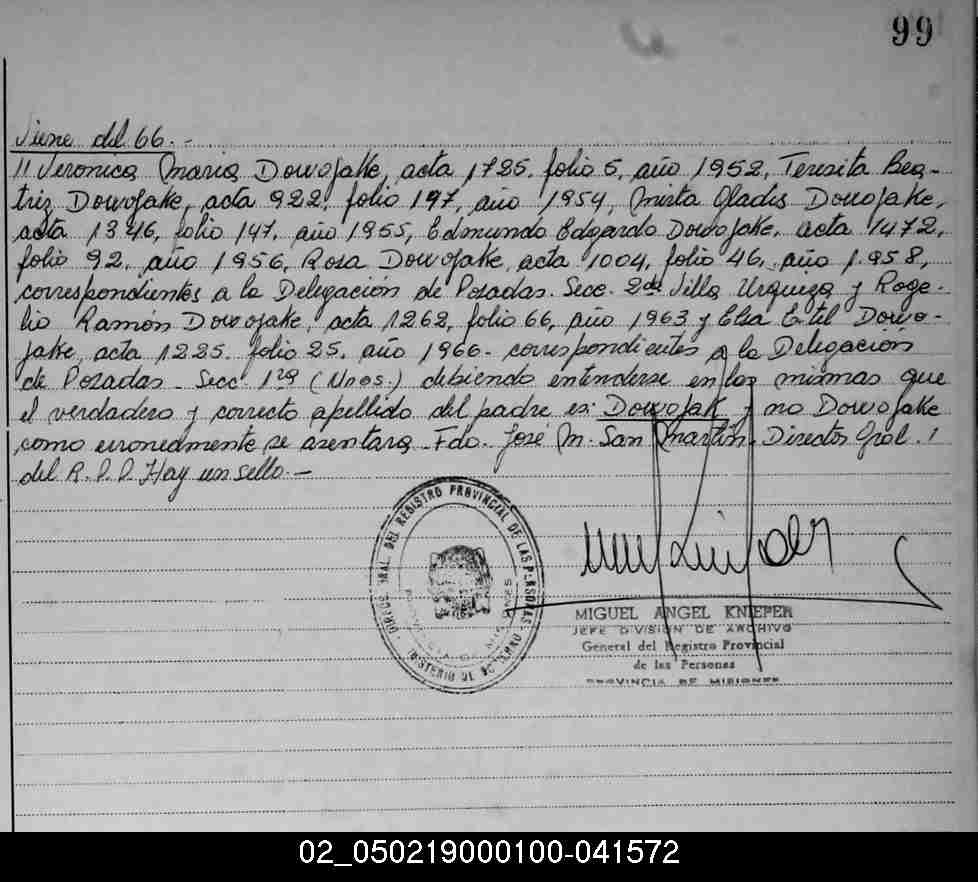 99
Viene del 66.-
// Veronica Maria Dowojake, acta 1725, folio 5, año 1952, Teresita Bea-
triz Dowojake, acta 922, folio 197, año 1954, Mirta Gladis Dowojake,
acta 1346, folio 147, año 1955, Edmundo Edgardo Dowojake, acta 1472,
folio 92, año 1956, Rosa Dowojake, acta 1004, folio 46, año 1.958,
correspondientes a la Delegación de Posadas. Secc. 2da Villa Urquiza y Roge-
lio Ramón Dowojake, acta 1262, folio 66, año 1963 y Elsa Etel Dowo-
jake, acta 1225. folio 25. año 1966- correspondientes a la Delegación
de Posadas - Secc. 1ra (Nros.) debiendo entenderse en las mismas que
el verdadero y correcto apellido del padre es: Dowojak y no Dowojake
como erroneamente se asentara - Fdo. José M. San Martín. Director Gral.
del R.P.P. Hay un sello.-
DIRECC. GRAL. DEL REGISTRO PROVINCIAL DE LAS PERSONAS
MINISTERIO DE GOBIERNO
PROVINCIA DE MISIONES
MIGUEL ANGEL KNIEPER
JEFE DIVISIÓN DE ARCHIVO
General del Registro Provincial
de las Personas
PROVINCIA DE MISIONES
02_050219000100-041572